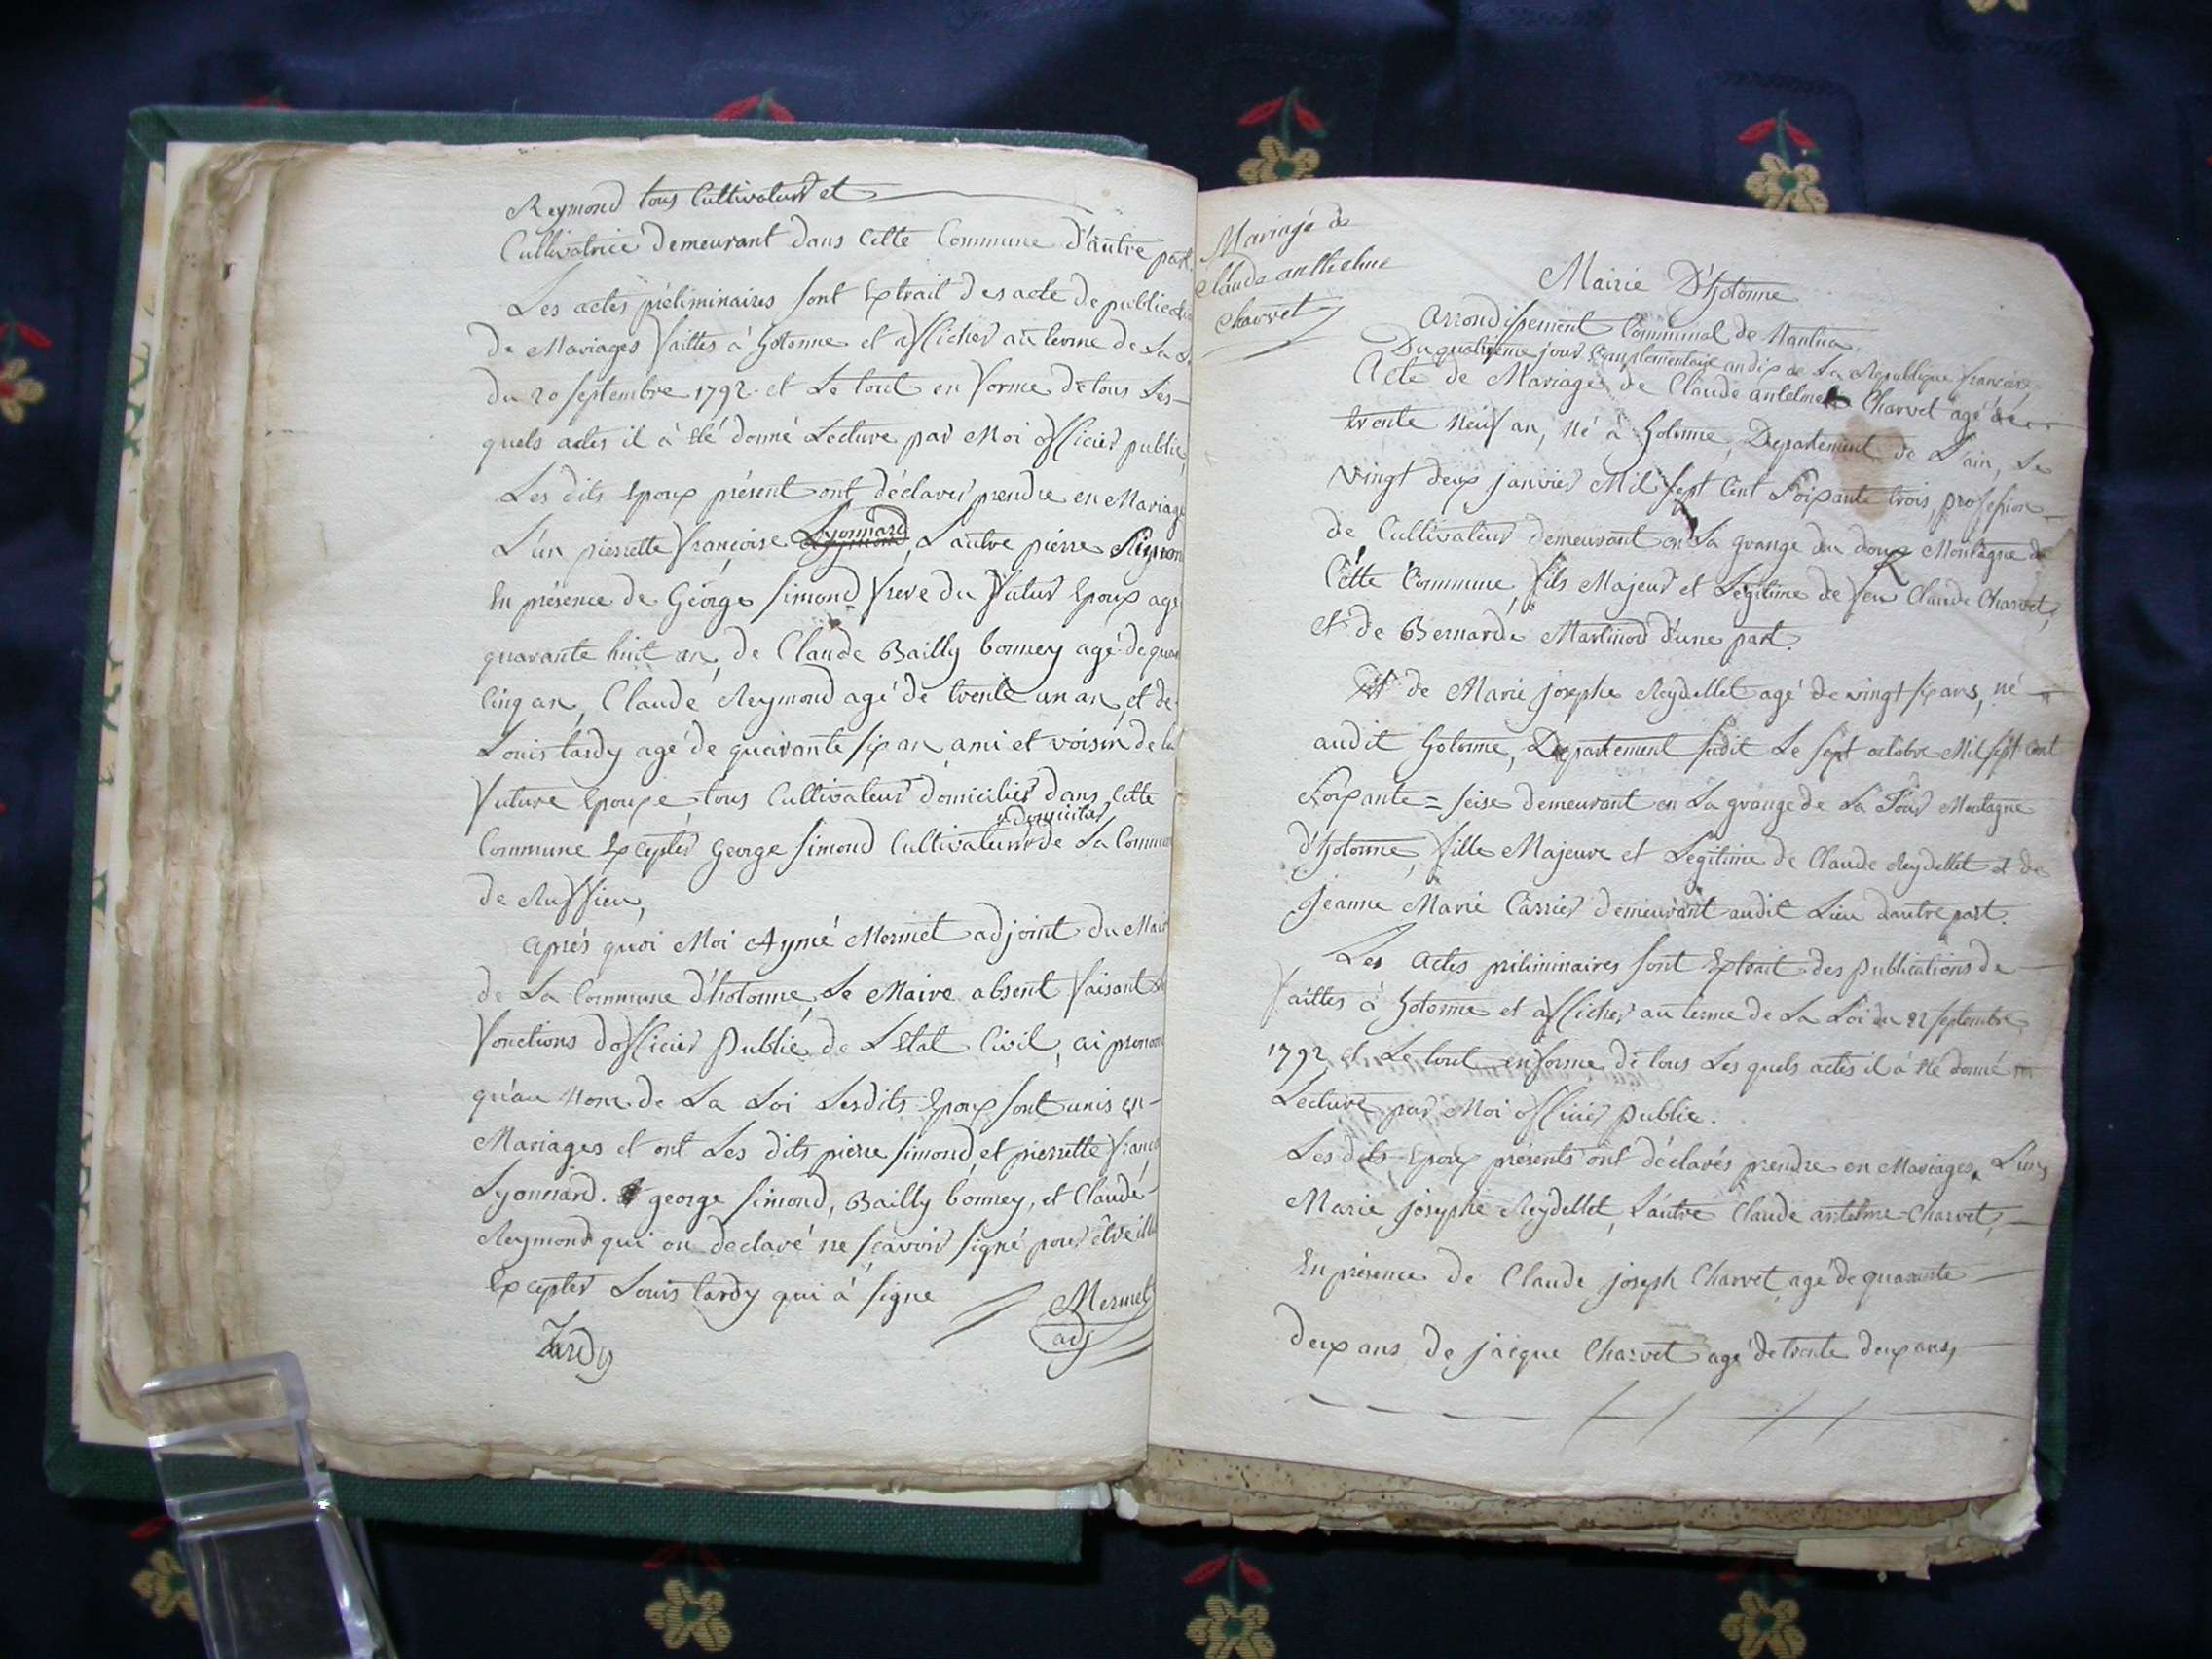 Reymond tous Cultivateur et
Cultivatrice demeurant dans Cette Commune d'autre part.
Les actes préliminaires sont Extrait des acte de publication
de Mariages faittes à hotonne et afficher au terme de La
du 20 septembre 1792. et Le tout en forme de tous Les-
quels actes il à été donné Lecture par Moi officier public,
Les dits Epoux présent ont déclarer prendre en Mariage
L'un pierrette françoise Lyonnard, L'autre pierre Simon
En présence de George Simond frere du futur Epoux agé
quarante huit an, de Claude Bailly bonney agé de quar
Cinq an, Claude Reymond agé de trente un an, et de
Louis tardy agé de quarante six an, ami et voisin de la
future Epouxe, tous Cultivateur domicilier dans Cette
domicilier
Commune Excepter George Simond Cultivateur de La Commun
de Ruffieu,
après quoi Moi Aymé Mermet adjoint du Mair
de La Commune d'hotonne, Le Maire absent faisant
fonctions d'officier Public de L'Etat Civil, ai pronon
qu'au Nom de La Loi Lesdits Epoux sont unis en-
Mariages et ont Les dits pierre Simond et pierrette franc
Lyonnard. george Simond, Bailly bonney, et Claude-
Reymond qui on declaré ne sçavoir signé pour être ill
Excepter Louis tardy qui à signe
Mermet
adj
Tardy
Mariage de
Claude anthelme
Charvet
Mairie D'hotonne
Arrondissement Communal de Nantua.
Du quatrieme jour Complementaire an dix de La Republique française
Acte de Mariage de Claude antelme Charvet agé de
trente Neuf an, né à hotonne, Departement de L'ain, Le
vingt deux janvier Mil sept Cent Soixante trois, profession
de Cultivateur demeurant en La grange du doux Montagne de
Cette Commune, fils Majeur et Legitime de feu Claude Charvet,
et de Bernarde Martinod d'une part.
Et de Marie josephe Reydellet agé de vingt six ans, né
audit hotonne, Departement sudit Le sept octobre Mil sept Cent
Soixante = seise demeurant en La grange de La Tour Montagne
d'hotonne, fille Majeure et Legitime de Claude Reydellet et de
Jeanne Marie Carrier demeurant audit Lieu d'autre part.
Les Actes préliminaires sont Extrait des Publications de
faittes à hotonne et afficher au terme de La Loi du 22 septembre
1792, et Le tout en forme de tous Les quels actes il à été donné
Lecture par Moi officier Public.
Les dits Epoux présents ont déclarés prendre en Mariages, L'un
Marie josephe Reydellet, L'autre Claude antelme Charvet,
En présence de Claude joseph Charvet agé de quarante
deux ans de jacque Charvet agé de trente deux ans,